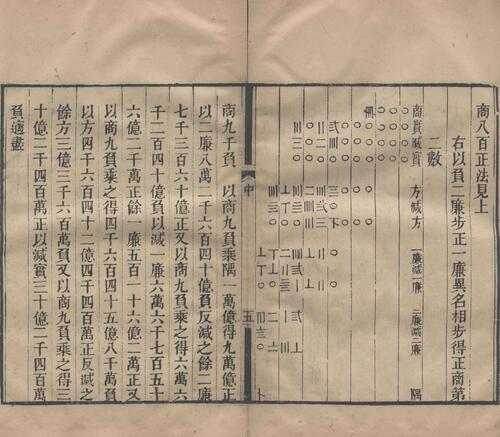 商八百正法見上
右以負二廉步正一廉異名相步得正商第
二數
商實減實　方減方　一廉減一廉　二廉減二廉　隅
中　五
商九千負　以商九負乘隅一萬億得九萬億正
以二廉八萬二千六百四十億負反減之餘二廉
七千三百六十億正又以商九負乘之得六萬六
千二百四十億負以減一廉六萬六千七百五十
六億二千萬正餘一廉五百一十六億二千萬正又
以商九負乘之得四千六百四十五億八千萬負
以方四千六百四十二億四千四百萬正反減之
餘方三億三千六百萬負又以商九負乘之得三
十億二千四百萬正以減實三十億二千四百萬
負適盡